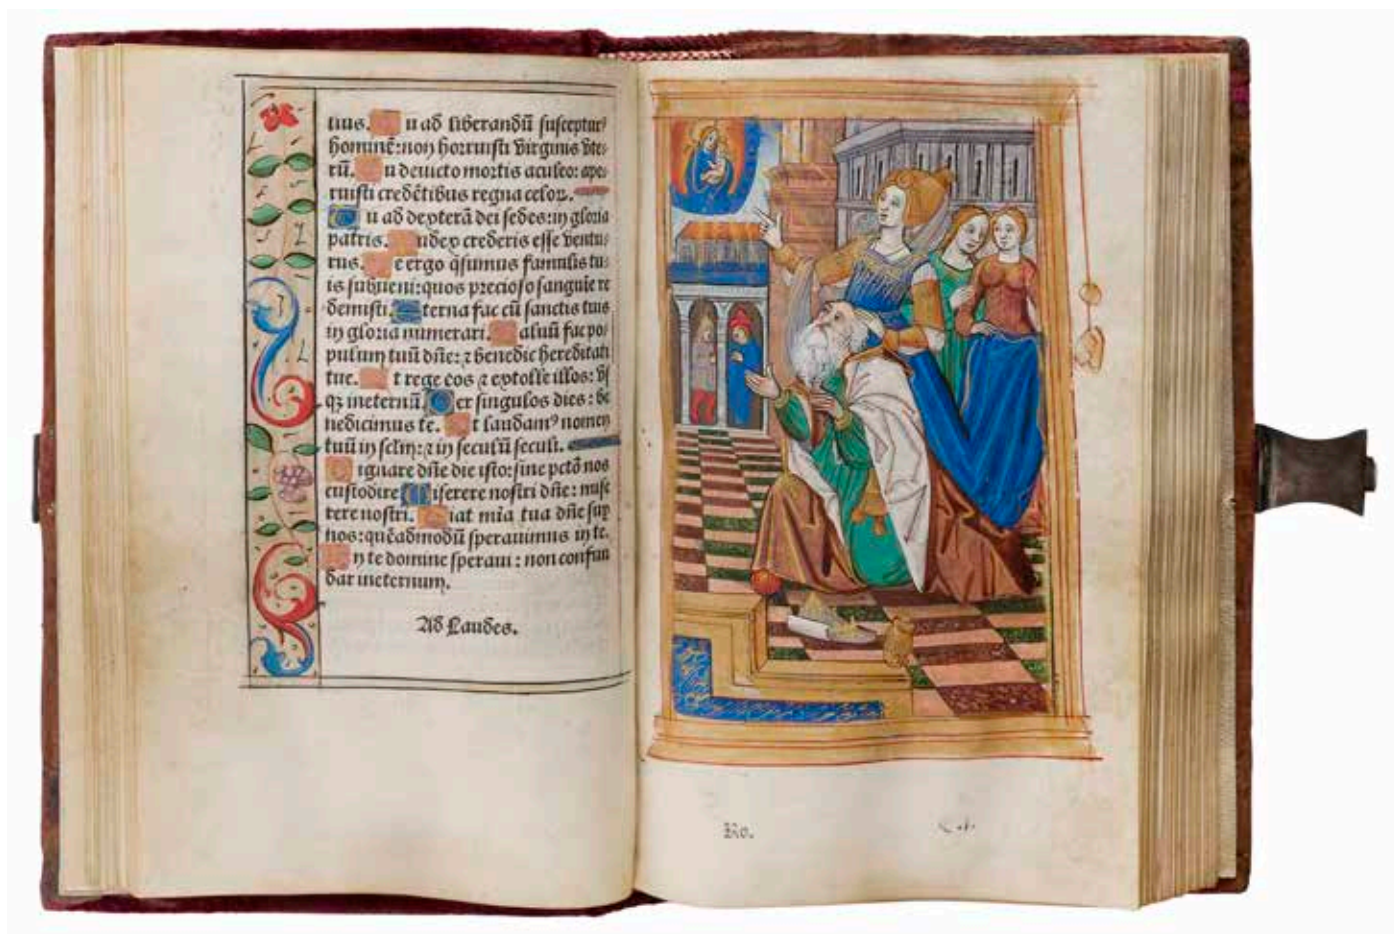 tuus. Tu ad liberandũ susceptur᷒
hominẽ: non horruisti virginis vte⸗
rũ. Tu deuicto mortis aculeo: ape⸗
ruisti credẽtibus regna celoꝝ.
Tu ad dexterã dei sedes: in gloria
patris. Iudex crederis esse ventu⸗
rus. Te ergo q̃sumus famulis tu⸗
is subueni: quos precioso sanguĩe re
demisti. Eterna fac cũ sanctis tuis
in gloria numerari. Saluũ fac po⸗
pulum tuũ dñe: ⁊ benedic hereditati
tue. Et rege eos ⁊ extolle illos: vs
qꝫ ineternũ. Per singulos dies: be
nedicimus te. Et laudamꝰ nomen
tuũ in sclm̃: ⁊ in seculũ seculi.
Dignare dñe die isto: sine pctõ nos
custodire Miserere nostri dñe: mise
rere nostri. Fiat mĩa tua dñe sup
nos: quẽadmodũ sperauimus in te.
In te domine speraui: non confun
dar ineternum.
Ad Laudes.
Ro.